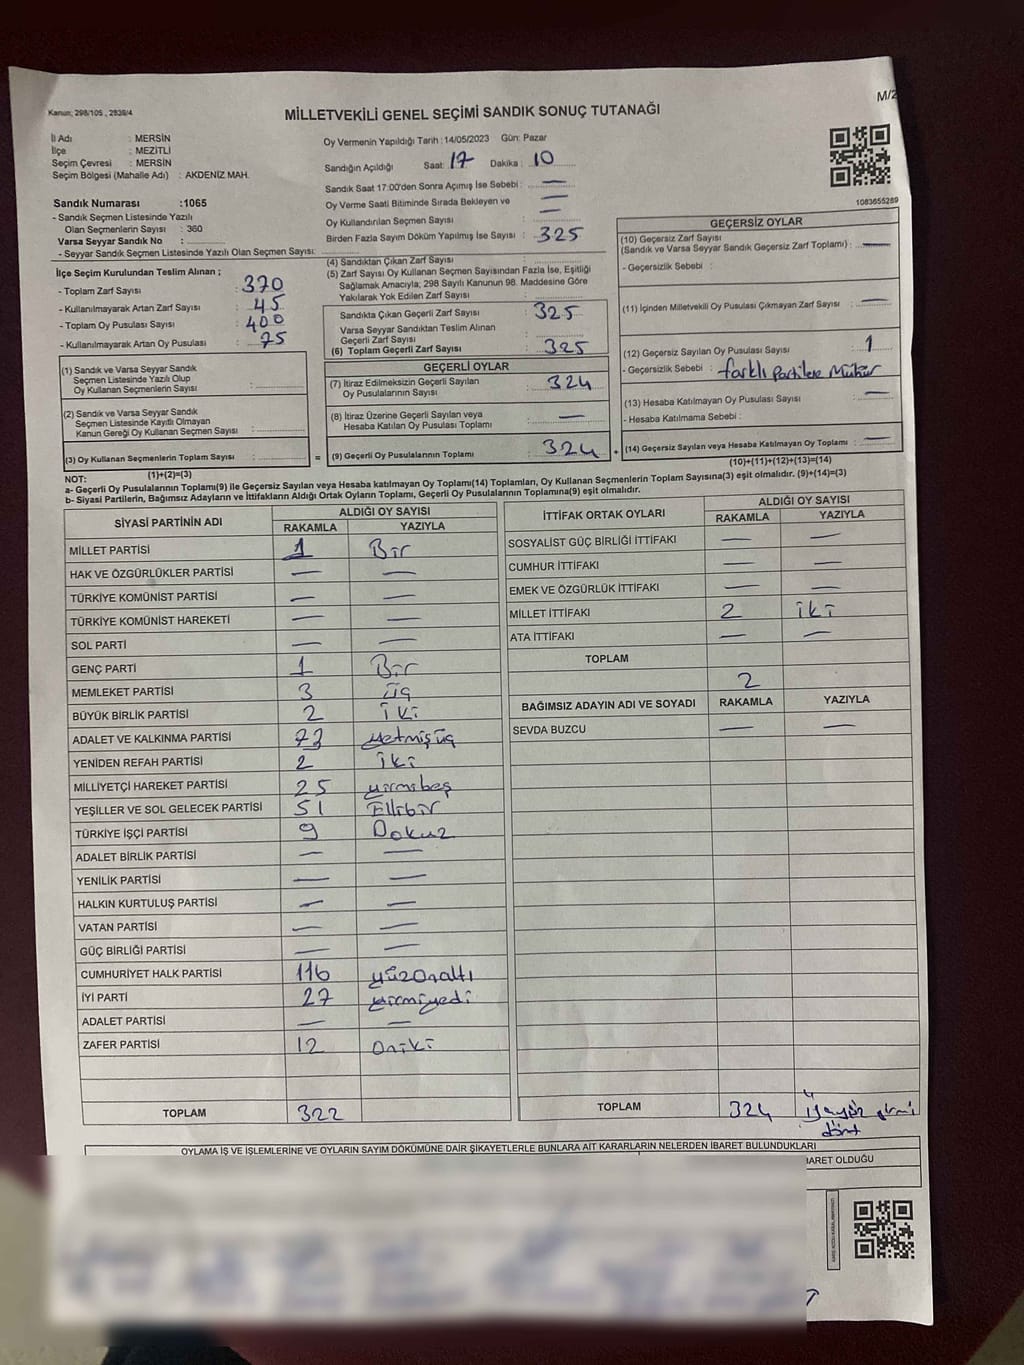 Kanun; 298/105 , 2839/4
MİLLETVEKİLİ GENEL SEÇİMİ SANDIK SONUÇ TUTANAĞI
M/2
İl Adı : MERSİN
İlçe : MEZİTLİ
Seçim Çevresi : MERSİN
Seçim Bölgesi (Mahalle Adı) : AKDENİZ MAH.
Sandık Numarası :1065
- Sandık Seçmen Listesinde Yazılı
Olan Seçmenlerin Sayısı : 360
Varsa Seyyar Sandık No :
- Seyyar Sandık Seçmen Listesinde Yazılı Olan Seçmen Sayısı:
Oy Vermenin Yapıldığı Tarih : 14/05/2023 Gün: Pazar
Sandığın Açıldığı Saat: 17 Dakika : 10
Sandık Saat 17:00'den Sonra Açmış İse Sebebi : —
Oy Verme Saati Bitiminde Sırada Bekleyen ve —
Oy Kullandırılan Seçmen Sayısı : —
Birden Fazla Sayım Döküm Yapılmış İse Sayısı : 325
1083655289
İlçe Seçim Kurulundan Teslim Alınan ;
- Toplam Zarf Sayısı : 370
- Kullanılmayarak Artan Zarf Sayısı : 45
- Toplam Oy Pusulası Sayısı : 400
- Kullanılmayarak Artan Oy Pusulası : 75
(1) Sandık ve Varsa Seyyar Sandık
Seçmen Listesinde Yazılı Olup
Oy Kullanan Seçmenlerin Sayısı :
(2) Sandık ve Varsa Seyyar Sandık
Seçmen Listesinde Kayıtlı Olmayan
Kanun Gereği Oy Kullanan Seçmen Sayısı :
(3) Oy Kullanan Seçmenlerin Toplam Sayısı :
(1)+(2)=(3)
(4) Sandıktan Çıkan Zarf Sayısı :
(5) Zarf Sayısı Oy Kullanan Seçmen Sayısından Fazla İse, Eşitliği
Sağlamak Amacıyla; 298 Sayılı Kanunun 98. Maddesine Göre
Yakılarak Yok Edilen Zarf Sayısı :
Sandıkta Çıkan Geçerli Zarf Sayısı : 325
Varsa Seyyar Sandıktan Teslim Alınan
Geçerli Zarf Sayısı :
(6) Toplam Geçerli Zarf Sayısı : 325
GEÇERLİ OYLAR
(7) İtiraz Edilmeksizin Geçerli Sayılan
Oy Pusulalarının Sayısı : 324
(8) İtiraz Üzerine Geçerli Sayılan veya
Hesaba Katılan Oy Pusulası Toplamı : —
= (9) Geçerli Oy Pusulalarının Toplamı : 324 +
GEÇERSİZ OYLAR
(10) Geçersiz Zarf Sayısı
(Sandık ve Varsa Seyyar Sandık Geçersiz Zarf Toplamı) : —
- Geçersizlik Sebebi :
(11) İçinden Milletvekili Oy Pusulası Çıkmayan Zarf Sayısı : —
(12) Geçersiz Sayılan Oy Pusulası Sayısı : 1
- Geçersizlik Sebebi : farklı Partilere Mühür
(13) Hesaba Katılmayan Oy Pusulası Sayısı : —
- Hesaba Katılmama Sebebi :
(14) Geçersiz Sayılan veya Hesaba Katılmayan Oy Toplamı : —
(10)+(11)+(12)+(13)=(14)
NOT:
a- Geçerli Oy Pusulalarının Toplamı(9) ile Geçersiz Sayılan veya Hesaba katılmayan Oy Toplamı(14) Toplamları, Oy Kullanan Seçmenlerin Toplam Sayısına(3) eşit olmalıdır. (9)+(14)=(3)
b- Siyasi Partilerin, Bağımsız Adayların ve İttifakların Aldığı Ortak Oyların Toplamı, Geçerli Oy Pusulalarının Toplamına(9) eşit olmalıdır.
SİYASİ PARTİNİN ADI ALDIĞI OY SAYISI
RAKAMLA YAZIYLA
MİLLET PARTİSİ 1 Bir
HAK VE ÖZGÜRLÜKLER PARTİSİ — —
TÜRKİYE KOMÜNİST PARTİSİ — —
TÜRKİYE KOMÜNİST HAREKETİ — —
SOL PARTİ — —
GENÇ PARTİ 1 Bir
MEMLEKET PARTİSİ 3 üç
BÜYÜK BİRLİK PARTİSİ 2 iki
ADALET VE KALKINMA PARTİSİ 73 yetmişüç
YENİDEN REFAH PARTİSİ 2 iki
MİLLİYETÇİ HAREKET PARTİSİ 25 yirmibeş
YEŞİLLER VE SOL GELECEK PARTİSİ 51 Ellibir
TÜRKİYE İŞÇİ PARTİSİ 9 Dokuz
ADALET BİRLİK PARTİSİ — —
YENİLİK PARTİSİ — —
HALKIN KURTULUŞ PARTİSİ — —
VATAN PARTİSİ — —
GÜÇ BİRLİĞİ PARTİSİ — —
CUMHURİYET HALK PARTİSİ 116 yüzonaltı
İYİ PARTİ 27 yirmiyedi
ADALET PARTİSİ — —
ZAFER PARTİSİ 12 oniki
TOPLAM 322
İTTİFAK ORTAK OYLARI ALDIĞI OY SAYISI
RAKAMLA YAZIYLA
SOSYALİST GÜÇ BİRLİĞİ İTTİFAKI — —
CUMHUR İTTİFAKI — —
EMEK VE ÖZGÜRLÜK İTTİFAKI — —
MİLLET İTTİFAKI 2 iki
ATA İTTİFAKI — —
TOPLAM 2
BAĞIMSIZ ADAYIN ADI VE SOYADI RAKAMLA YAZIYLA
SEVDA BUZCU — —
TOPLAM 324 üçyüz yirmi
dört
OYLAMA İŞ VE İŞLEMLERİNE VE OYLARIN SAYIM DÖKÜMÜNE DAİR ŞİKAYETLERLE BUNLARA AİT KARARLARIN NELERDEN İBARET BULUNDUKLARI
BARET OLDUĞU